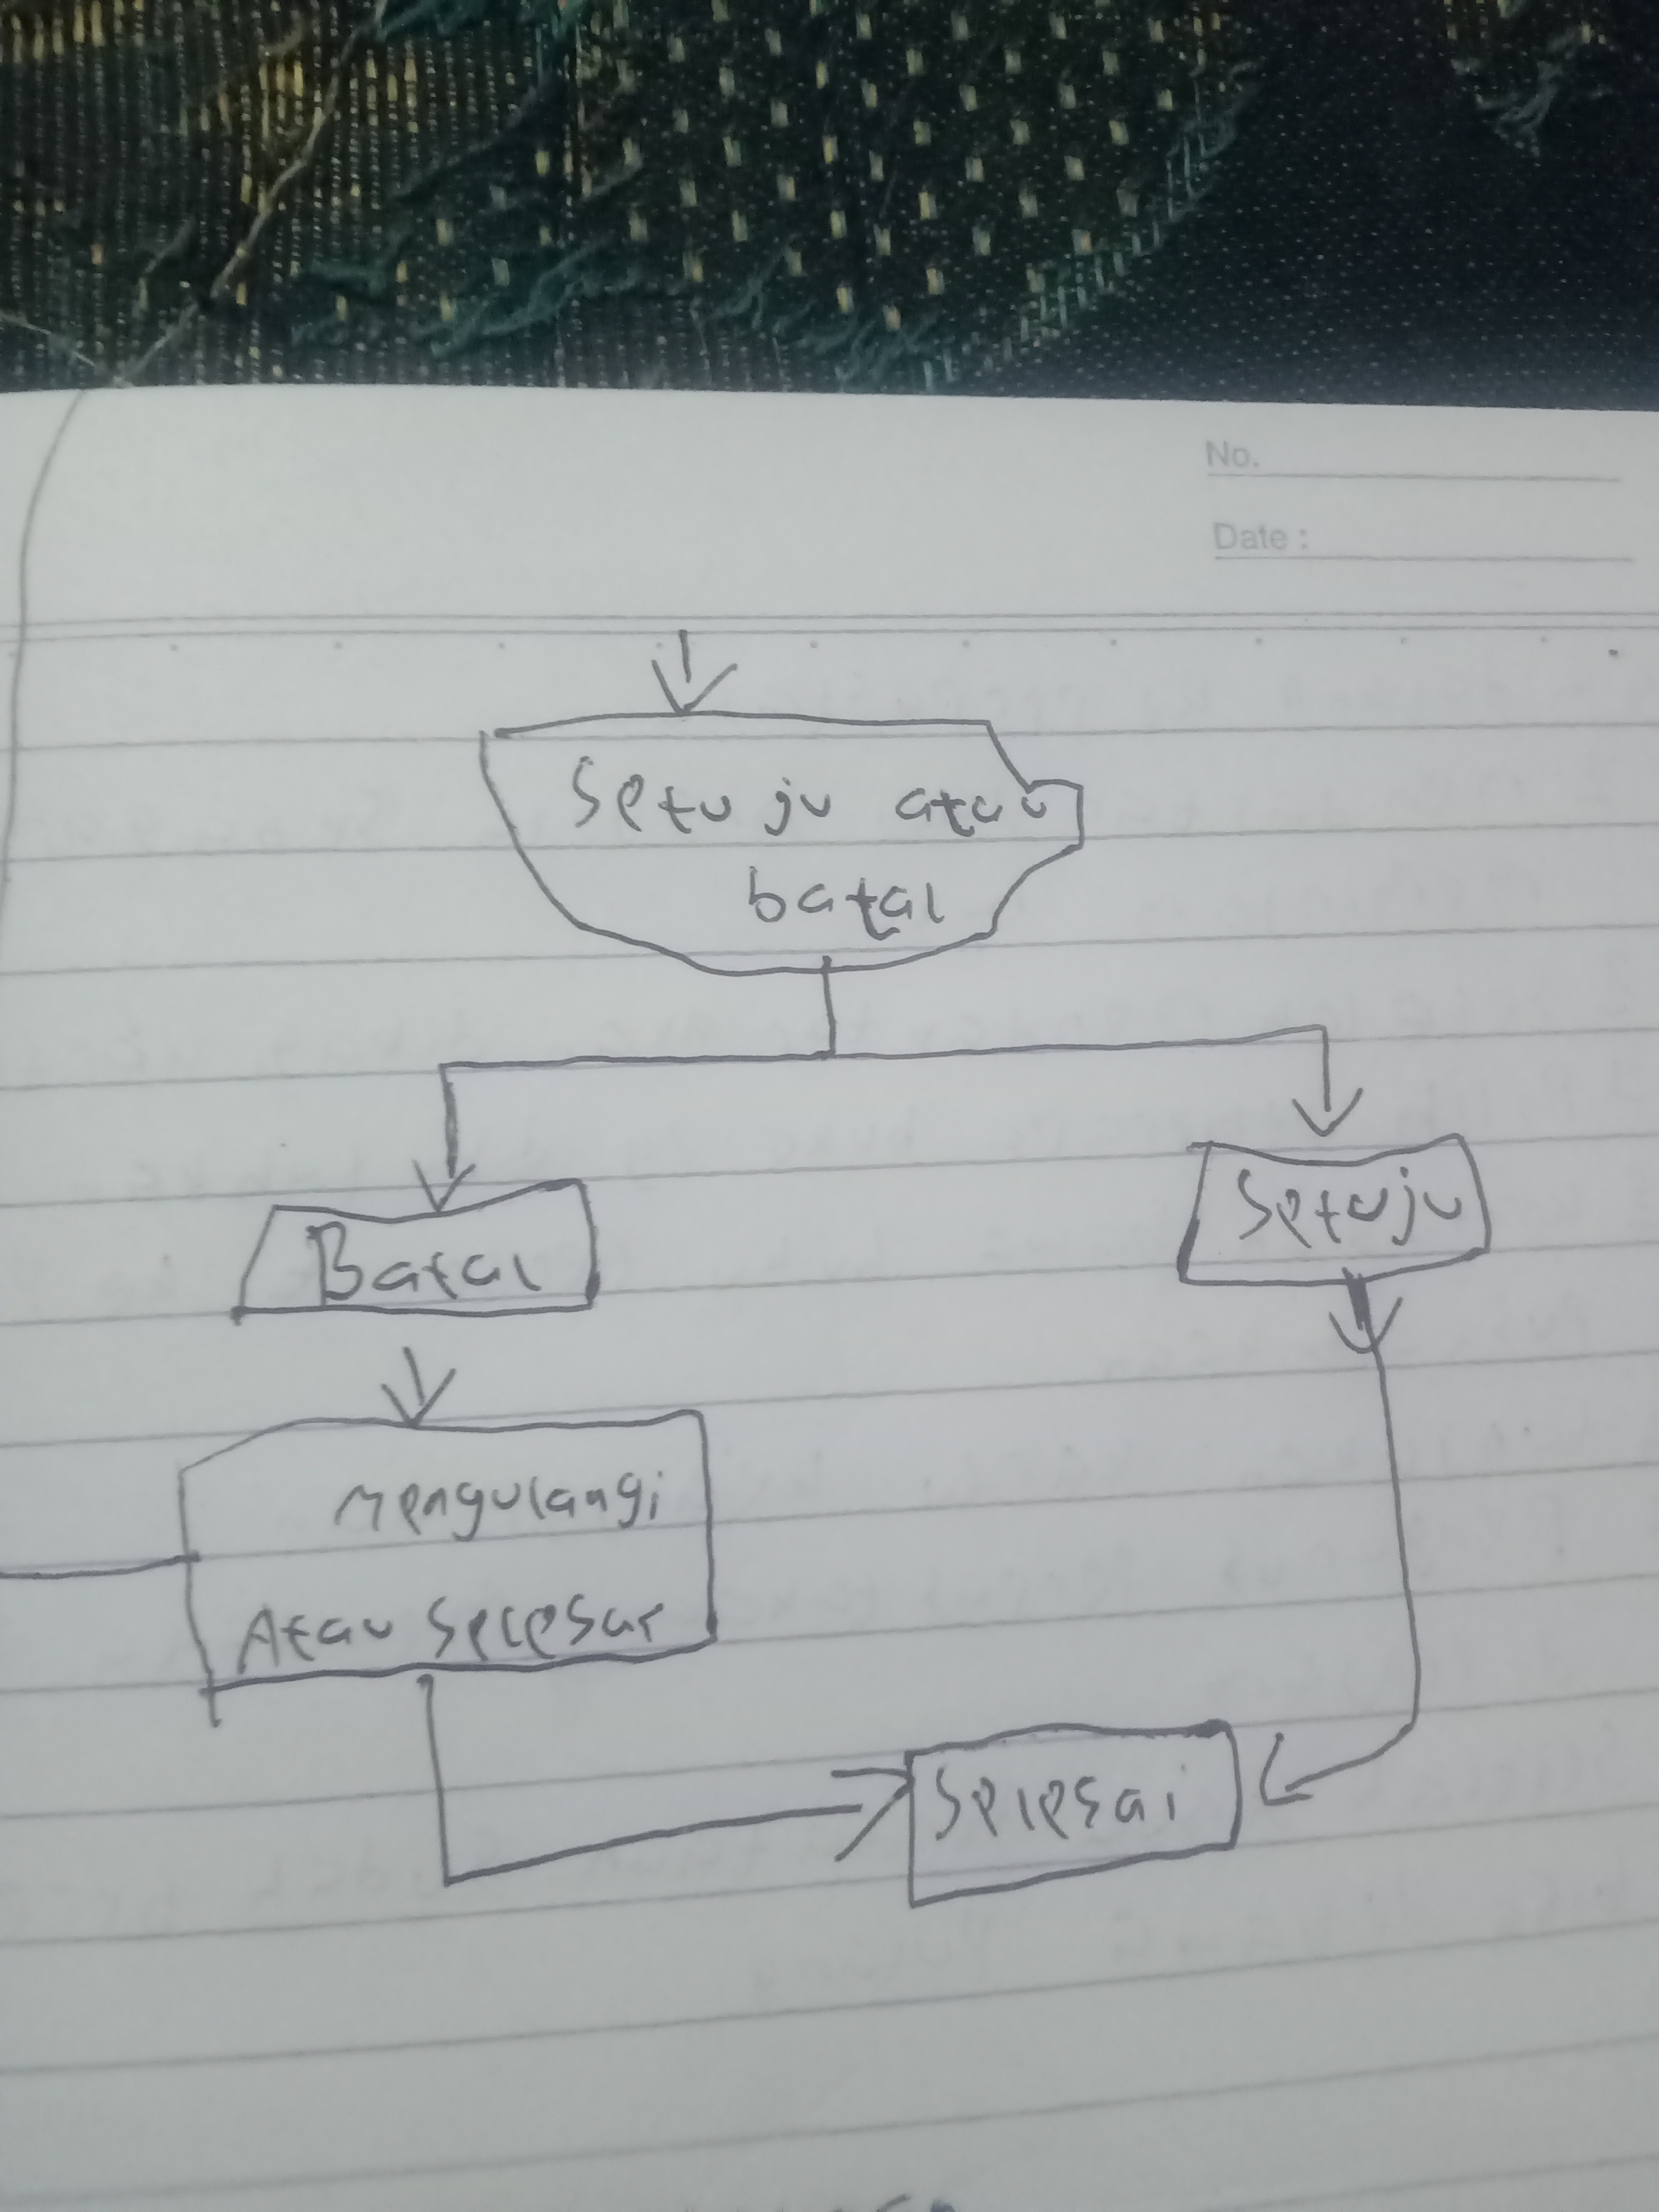 No.
Date :
Setuju atau
batal
Batal
Setuju
Mengulangi
Atau Selesai
Selesai